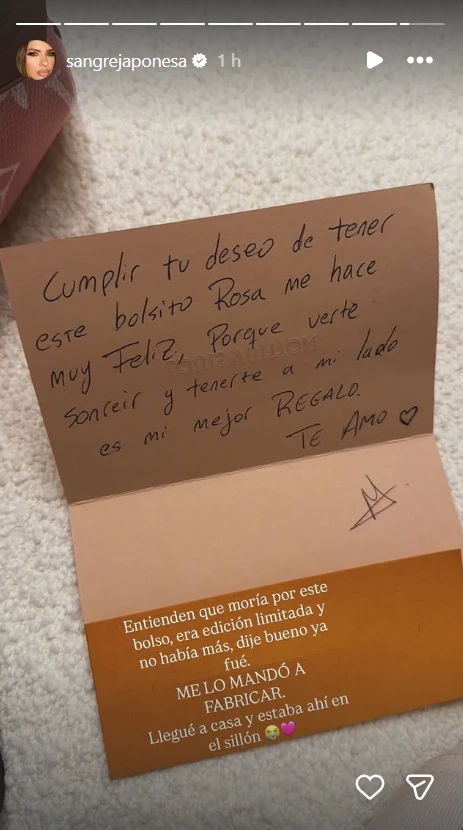 sangrejaponesa 1 h
Cumplir tu deseo de tener
este bolsito Rosa me hace
muy Feliz, Porque verte
sonreir y tenerte a mi lado
es mi mejor REGALO.
TE AMO ♡
Entienden que moría por este
bolso, era edición limitada y
no había más, dije bueno ya
fué.
ME LO MANDÓ A
FABRICAR.
Llegué a casa y estaba ahí en
el sillón 😭💖